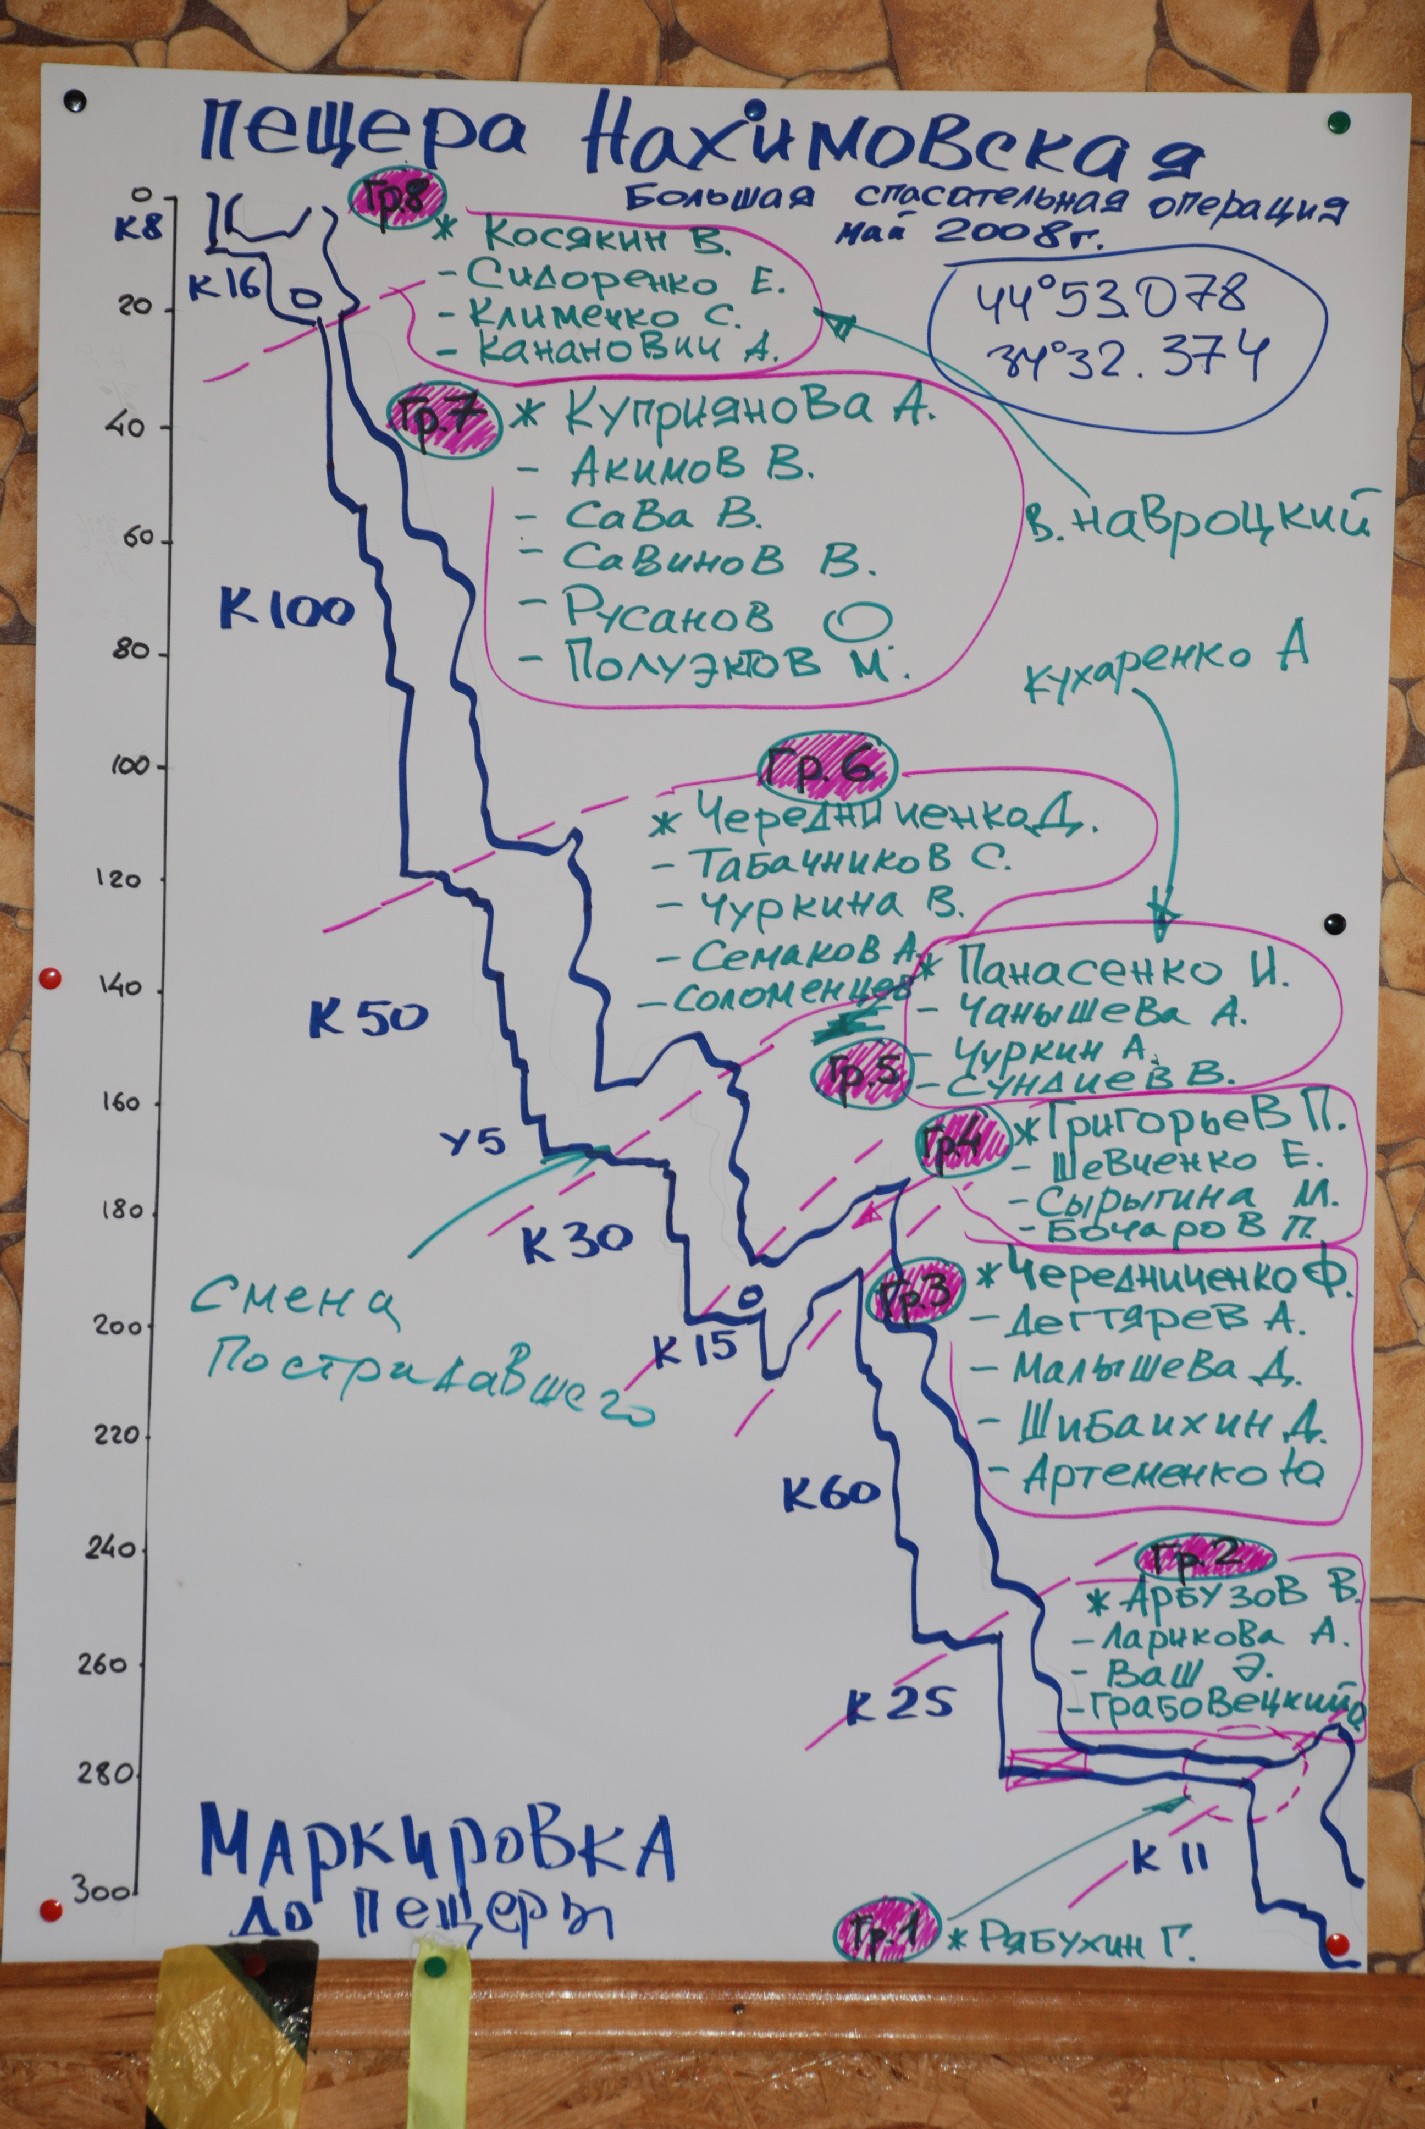 Пещера Нахимовская
Большая спасательная операция
май 2008г.
44°53.078
34°32.374
0
20
40
60
80
100
120
140
160
180
200
220
240
260
280
300
К8
К16
К100
К50
У5
К30
К15
К60
К25
К11
Гр.8
* Косякин В.
- Сидоренко Е.
- Клименко С.
- Кананович А.
В. Навроцкий
Гр.7
* Куприянова А.
- Акимов В.
- Сава В.
- Савинов В.
- Русанов О
- Полуэктов М.
Кухаренко А
Гр.6
* Чередниченко Д.
- Табачников С.
- Чуркина В.
- Семаков А.
- Соломенцев
Гр.5
* Панасенко И.
- Чанышева А.
- Чуркин А.
- Сундиев В.
Гр.4
* Григорьев П.
- Шевченко Е.
- Сырыгина М.
- Бочаров П.
Гр.3
* Чередниченко Ф.
- Дегтярев А.
- Малышева Д.
- Шибаихин Д.
- Артеменко Ю
Гр.2
* Арбузов В.
- Ларикова А.
- Ваш Э.
- Грабовецкий О
Гр.1
* Рябухин Г.
Смена
Пострадавшего
Маркировка
до пещеры